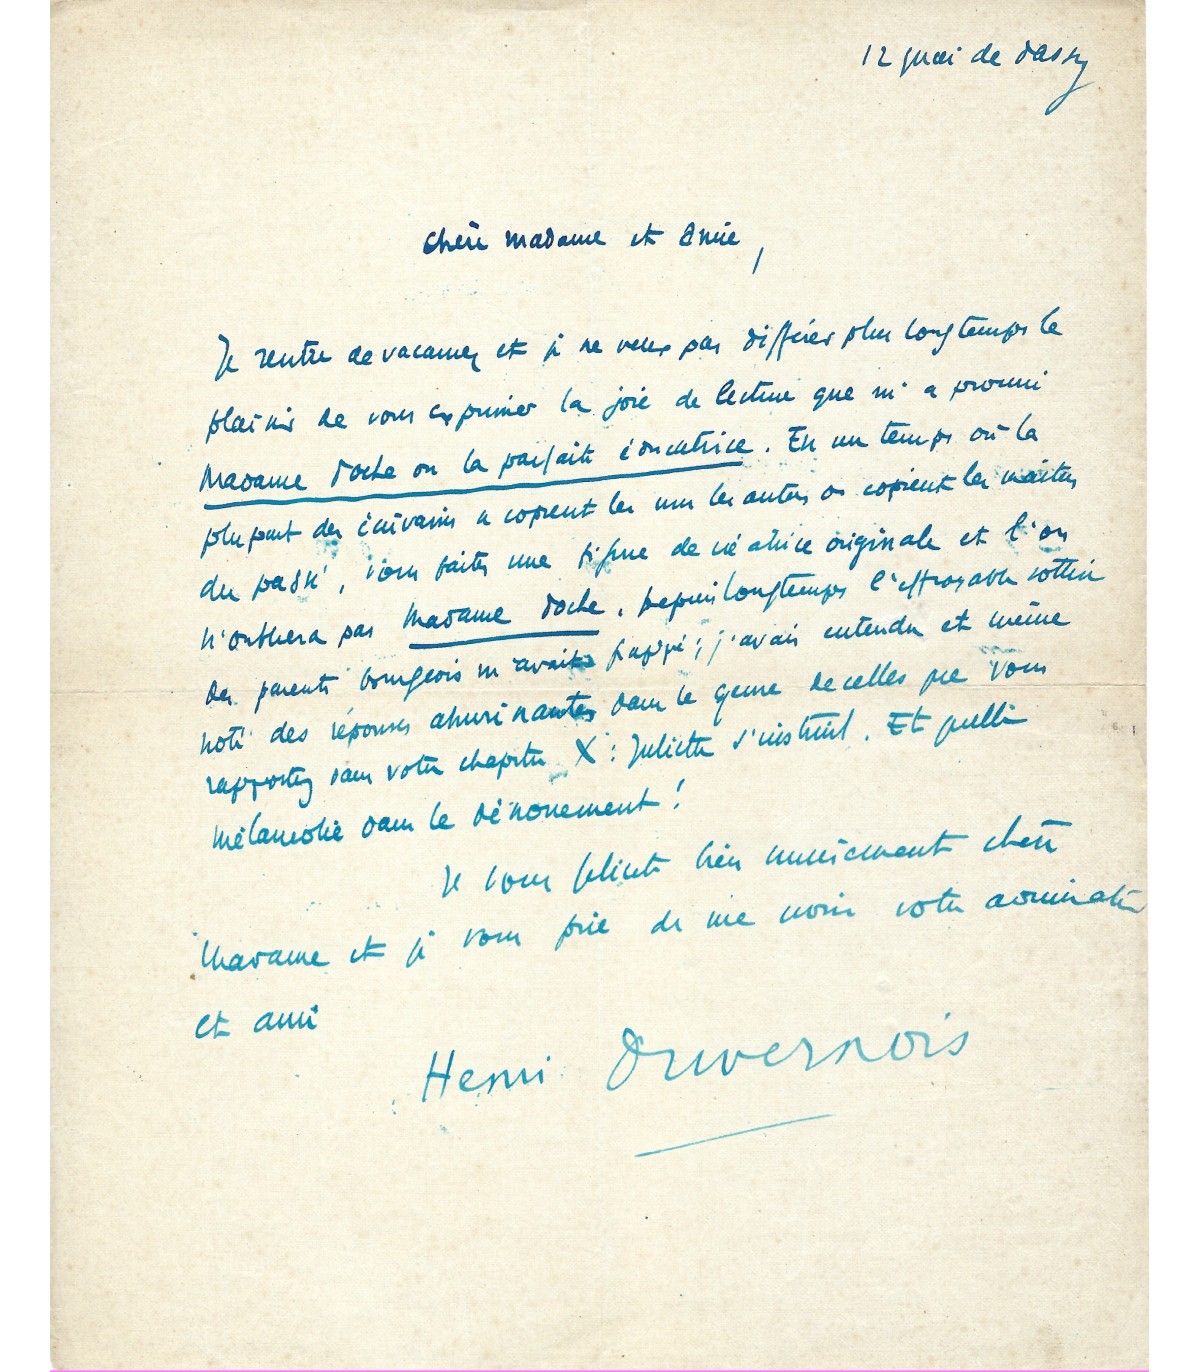 12 quai de Passy
Chère Madame et Amie,
Je rentre de vacances et je ne veux pas différer plus longtemps le
plaisir de vous exprimer la joie de lecture que m'a procuré
Madame Doche ou la parfaite éducatrice. En un temps où la
plupart des écrivains se copient les uns les autres ou copient les maîtres
du passé, vous faites une figure de créatrice originale et l'on
n'oubliera pas Madame Doche. Depuis longtemps l'effroyable sottise
des parents bourgeois m'avait frappé ; j'avais entendu et même
noté des réponses ahurissantes dans le genre de celles que vous
rapportez dans votre chapitre X : Juliette s'instruit. Et quelle
mélancolie dans le dénouement !
Je vous félicite bien sincèrement chère
Madame et je vous prie de me croire votre admirateur
et ami
Henri Duvernois